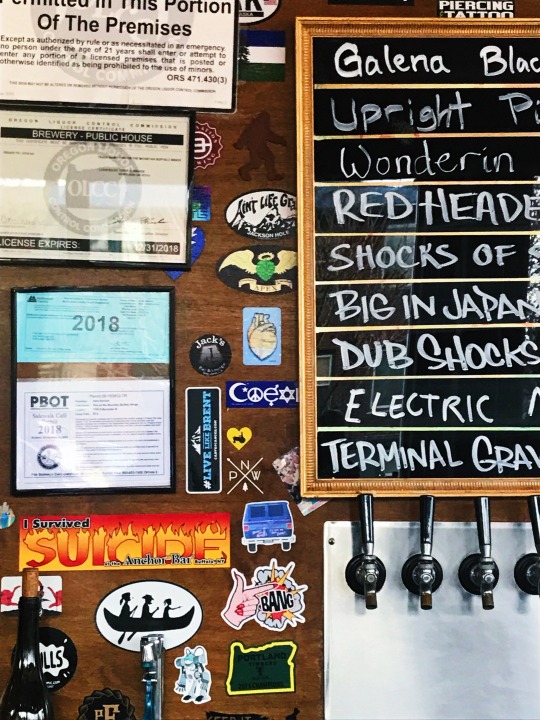 Permitted In This Portion
Of The Premises
Except as authorized by rule or as necessitated in an emergency,
no person under the age of 21 years shall enter or attempt to
enter any portion of a licensed premises that is posted or
otherwise identified as being prohibited to the use of minors.
ORS 471.430(3)
OREGON LIQUOR CONTROL COMMISSION
LICENSE CERTIFICATE
BREWERY - PUBLIC HOUSE
OLCC
LICENSE EXPIRES:
/31/2018
2018
PBOT
Sidewalk Café
2018
AK
PIERCING
TATTOO
AIN'T LIFE GR
JACKSON HOLE
APEX
Jack's
COEXI
#LIVE LIKE BRENT
N
P W
I Survived
SUICIDE
at the Anchor Bar Buffalo, NY
BANG
LLS
PORTLAND
TIMBERS
KEEP IT
Galena Blac
Upright Pi
Wonderin
RED HEADE
SHOCKS OF
BIG IN JAPAN
DUB SHOCKS
ELECTRIC
TERMINAL GRAV